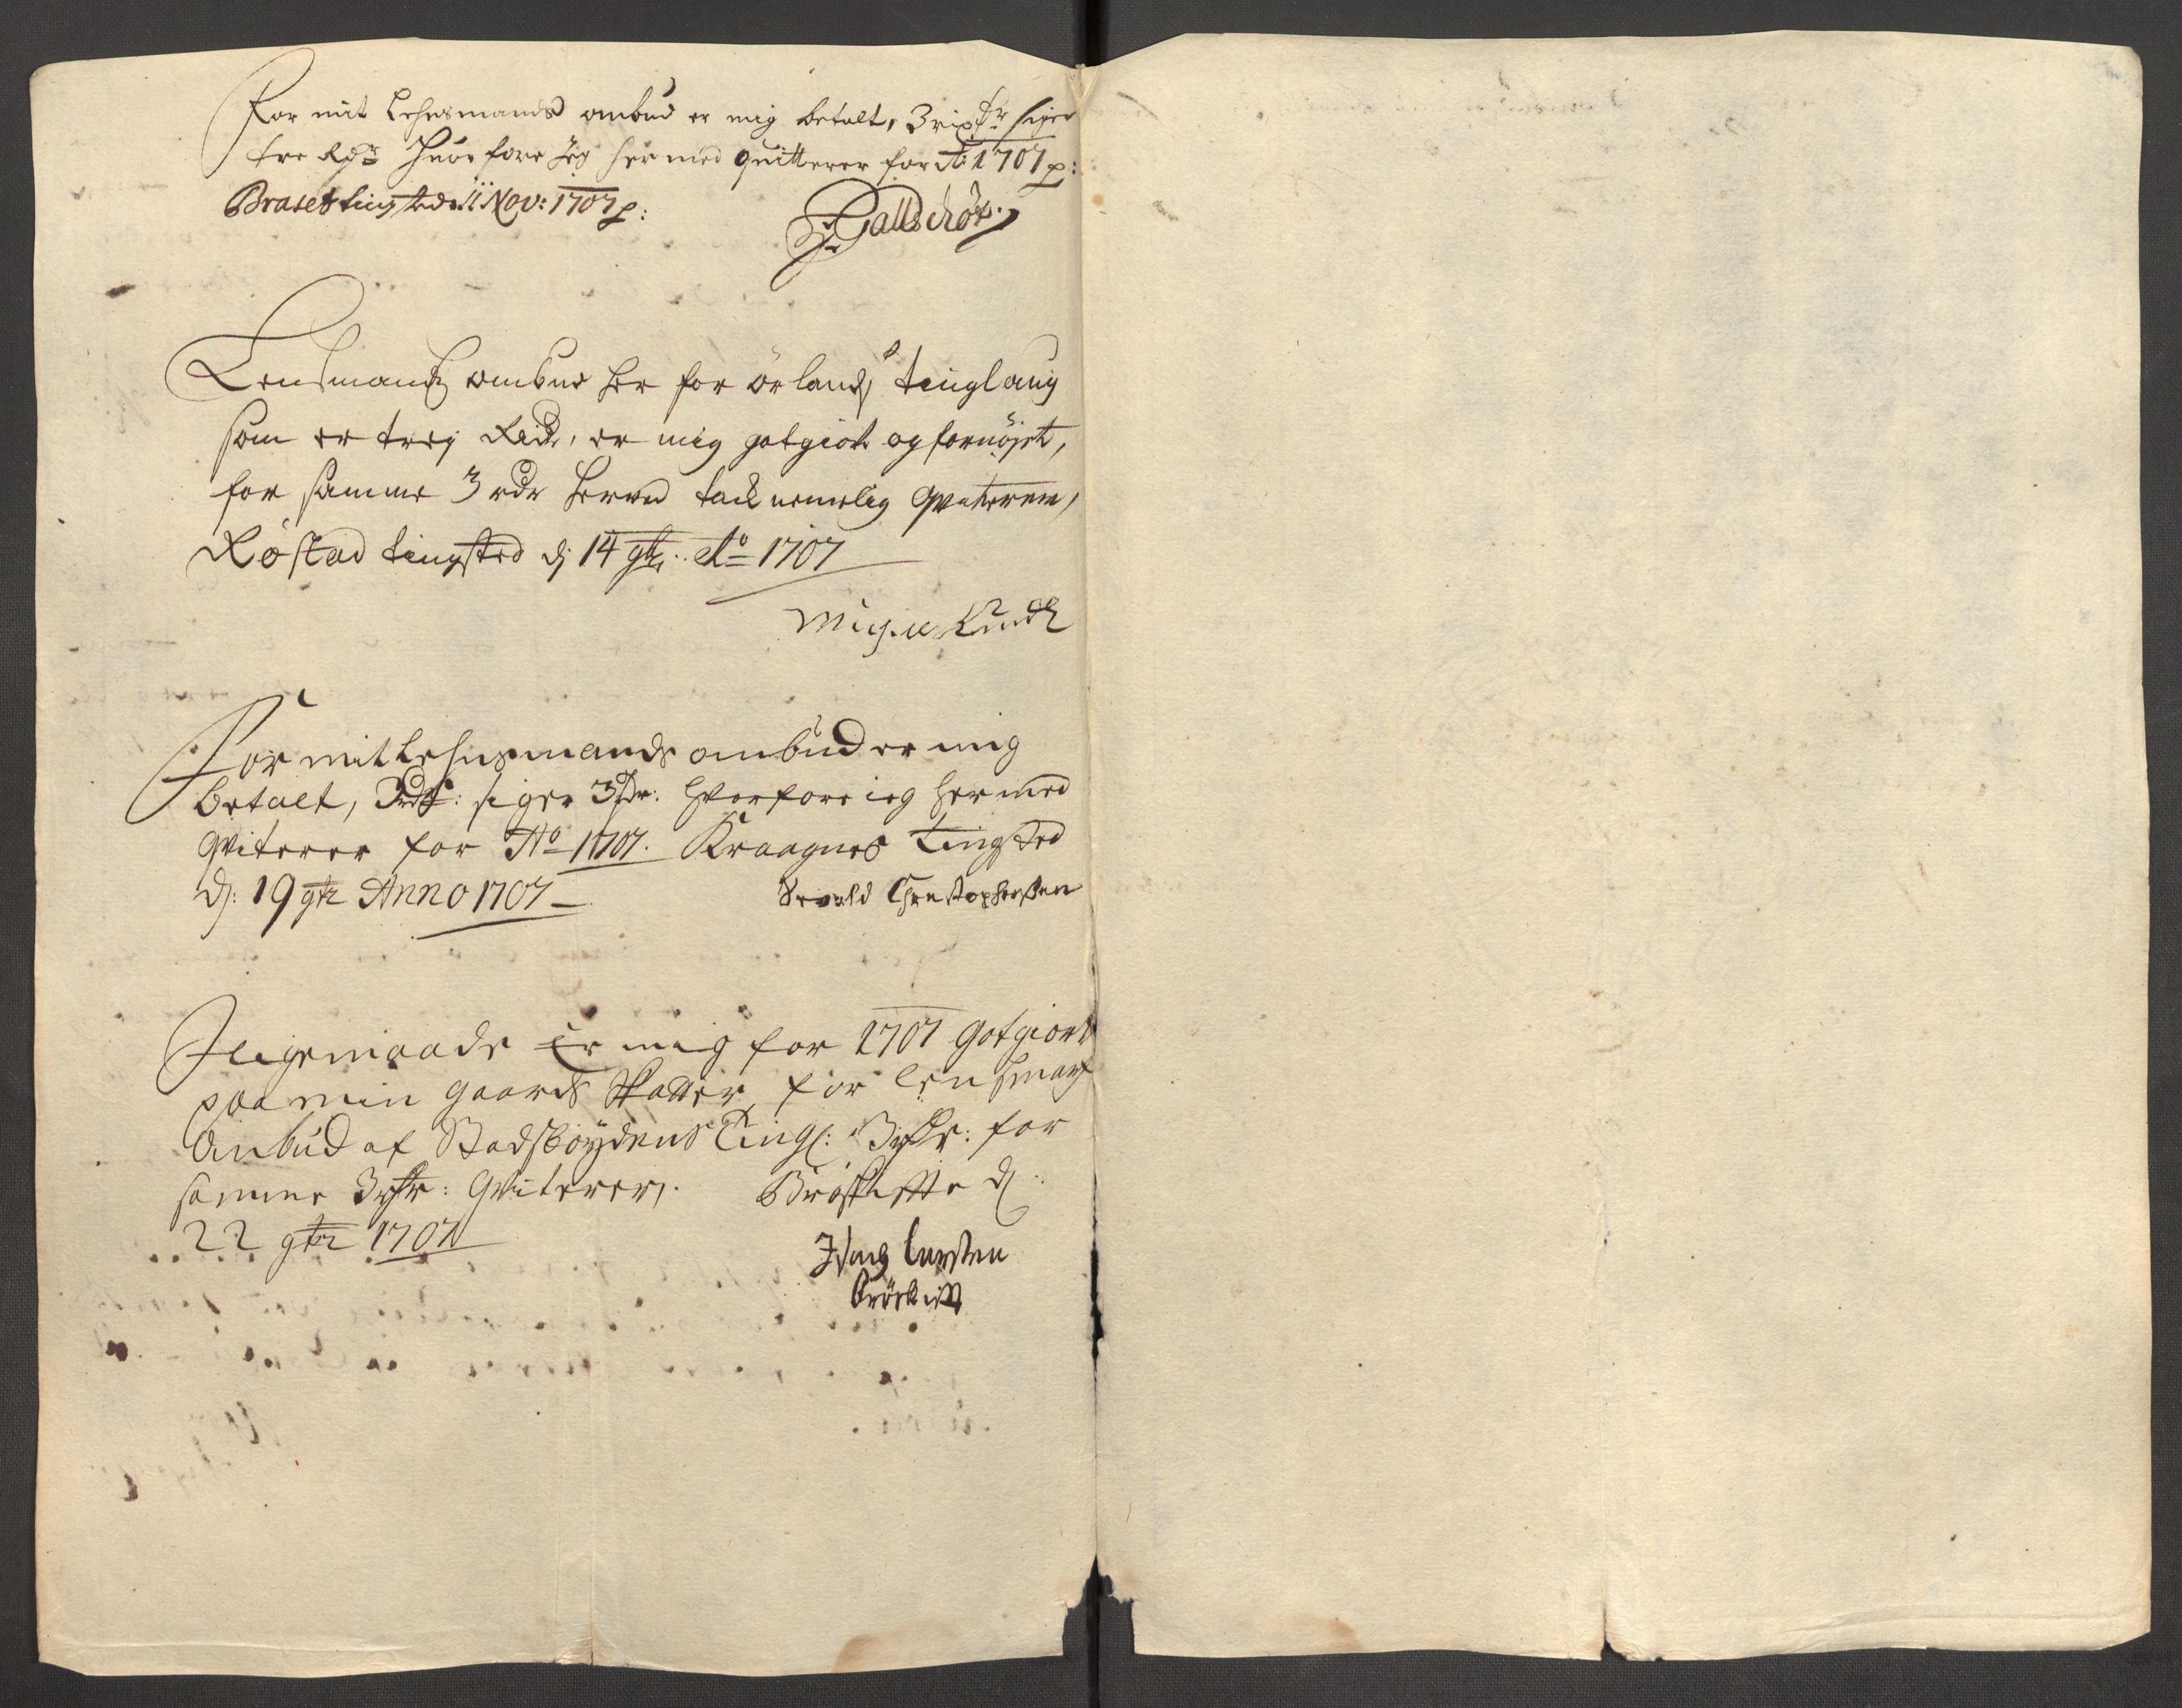 For mit Lehnsmands ombud er mig betalt, 3 rixdr siger
tre Rdr Huorfore Jeg hermed quitterer for Ao 1707
Braset tingsted 11 Nov: 1707
Lensmandz ombud her for ørlandz tinglaug
som er trej Rdr, er mig gotgiort og fornøjet,
for samme 3 rdr herved tacknemelig Qviterer,
Røstad tingsted dj 14 9br: Ao 1707
For mit Lehnsmands ombud er mig
betalt, 3 rdr: siger 3 rdr: hvorfore ieg hermed
Qviterer for Ao 1707. Kraagnes tingsted
dj: 19 9br Anno 1707
Sevald Christophersen
Jligemaade Er mig for 1707 gotgiort
paa min gaards Skatter for lensmans
Ombud af Stadsbøydens Tingl: 3 rdr: for
samme 3 rdr: Qviterer. dj
22 9br 1707